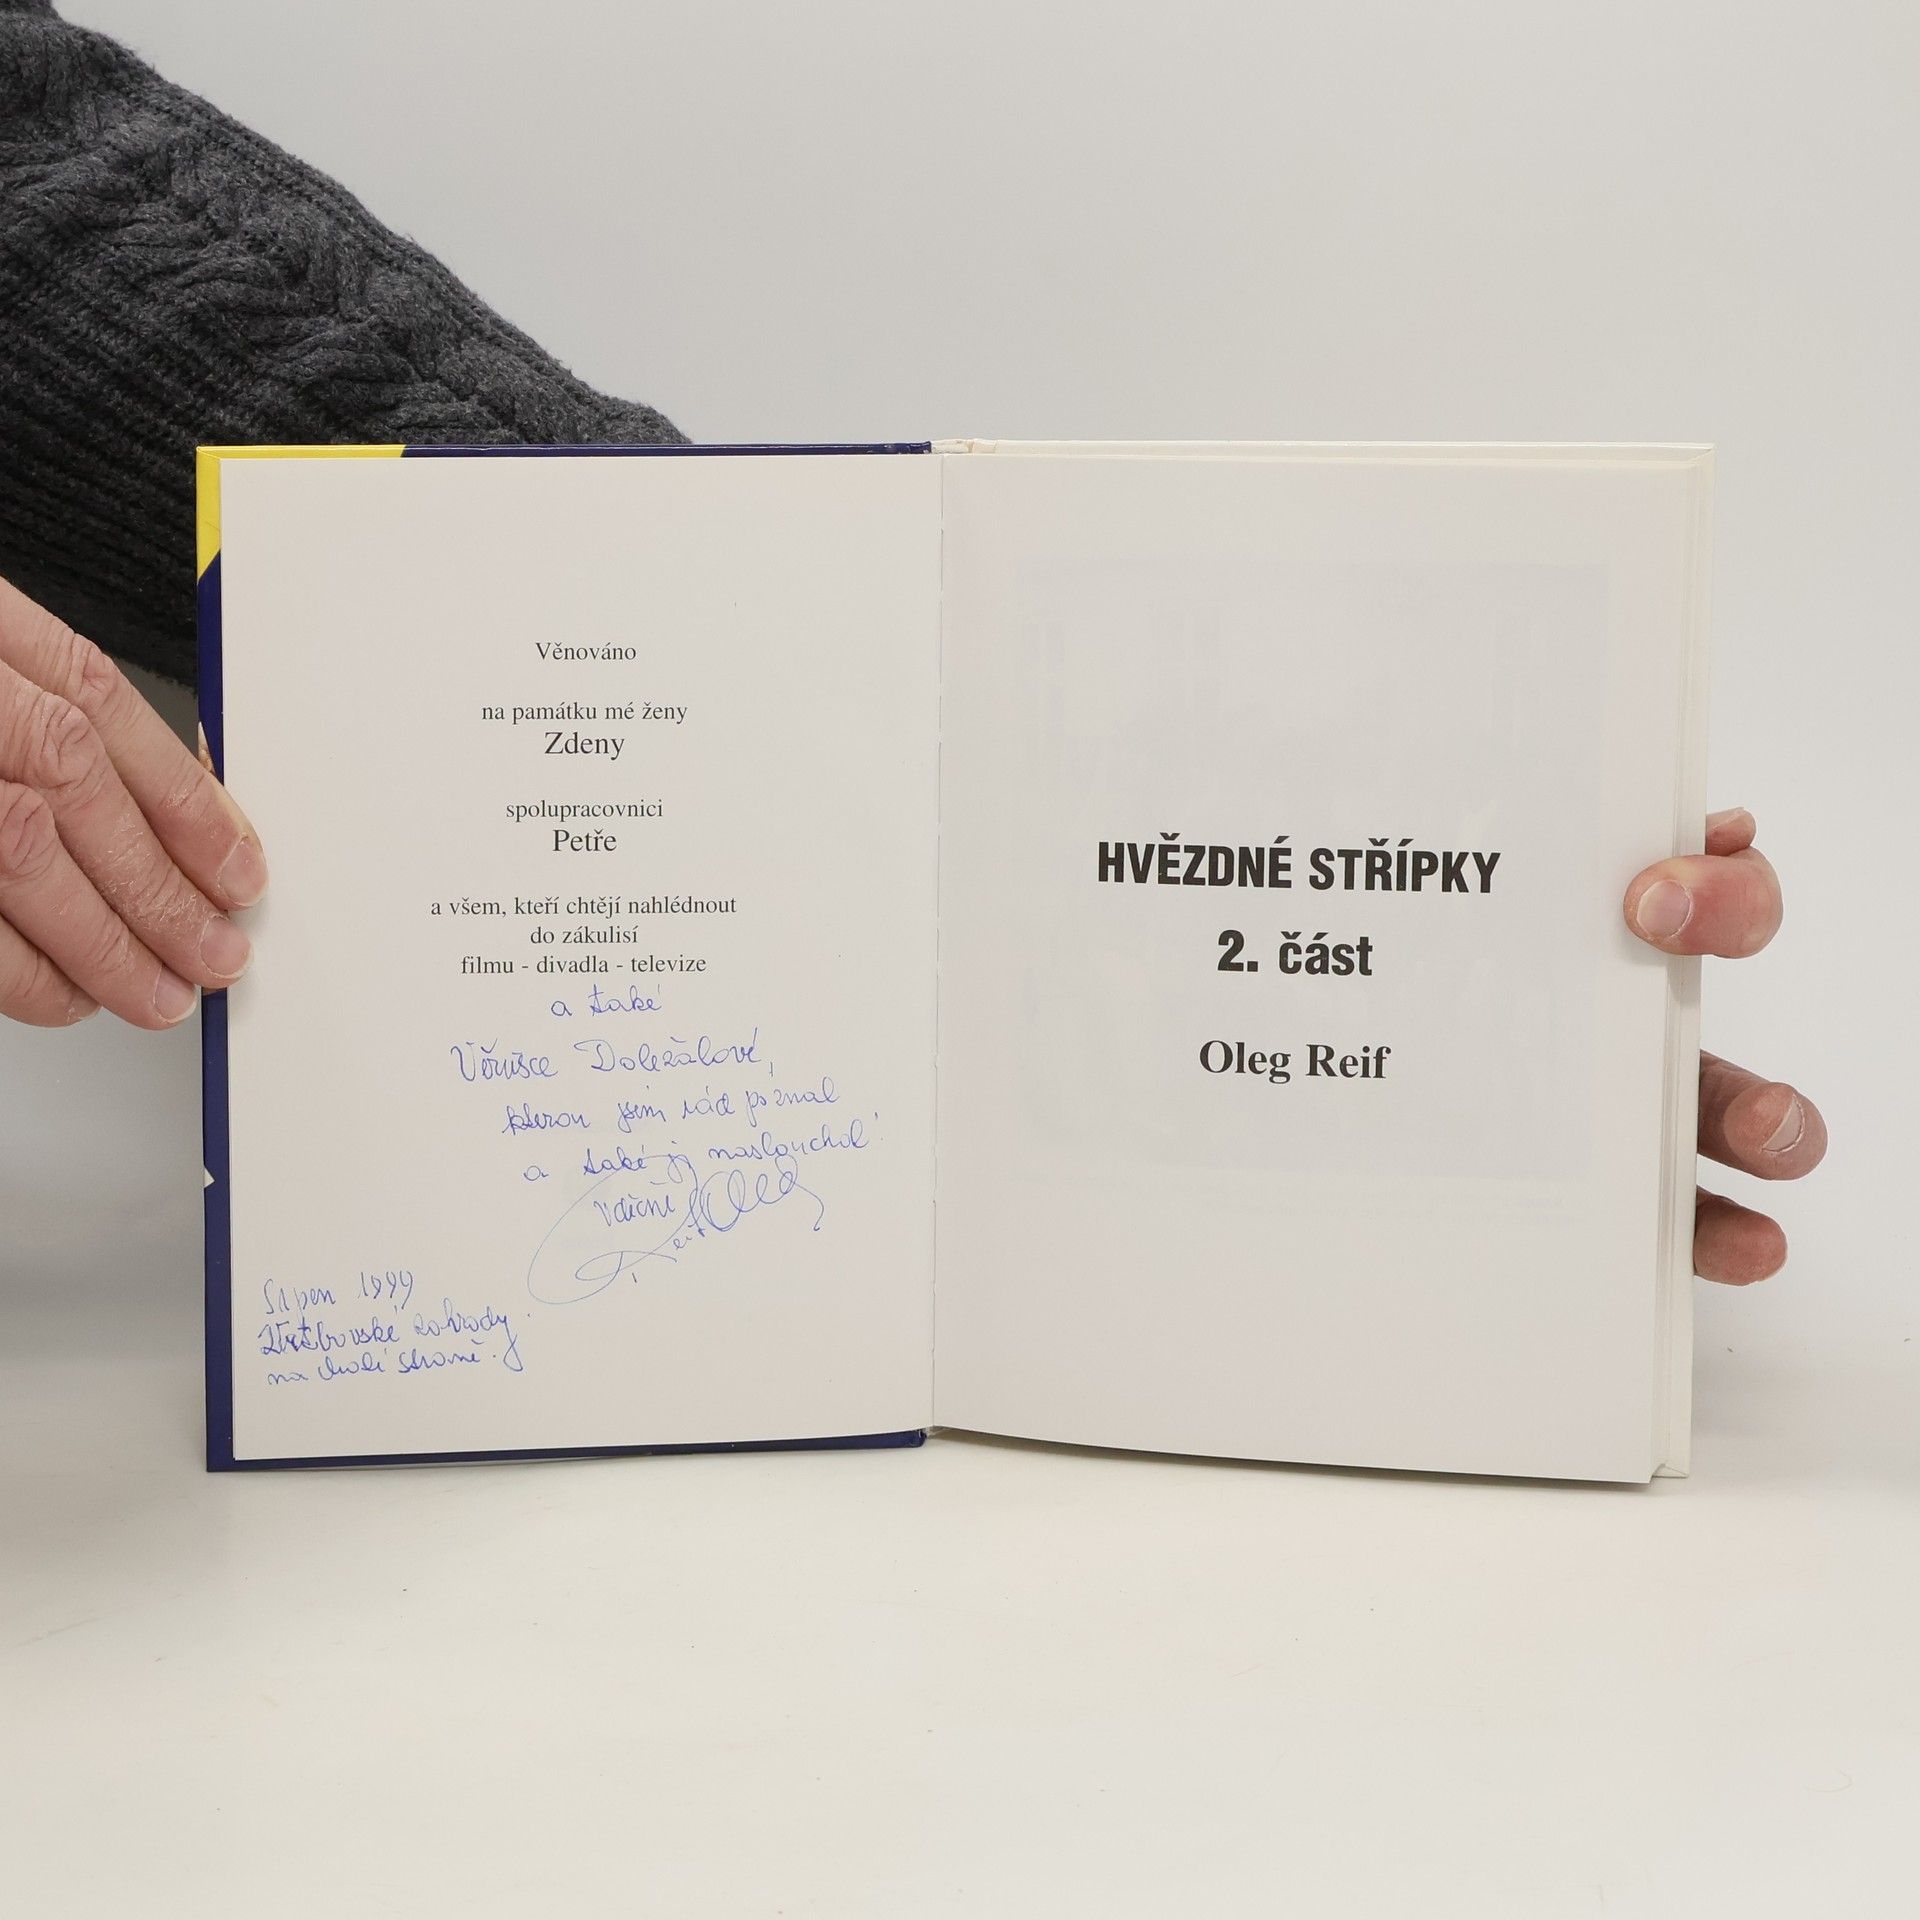 Věnováno
na památku mé ženy
Zdeny
spolupracovnici
Petře
a všem, kteří chtějí nahlédnout
do zákulisí
filmu - divadla - televize
a také
Věrušce Doležalové,
kterou jsem rád poznal
a také jí naslouchal!
Vděčně
Reif Oleg
Srpen 1999
Vrtbovské zahrady
na Malé straně.
HVĚZDNÉ STŘÍPKY
2. část
Oleg Reif